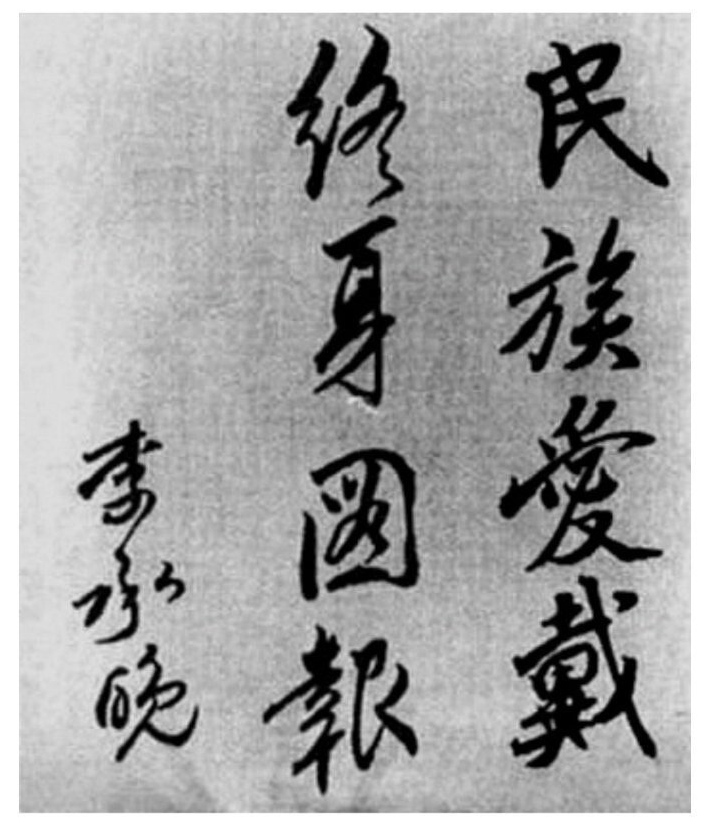 民族愛戴
終身圖報
李承晚